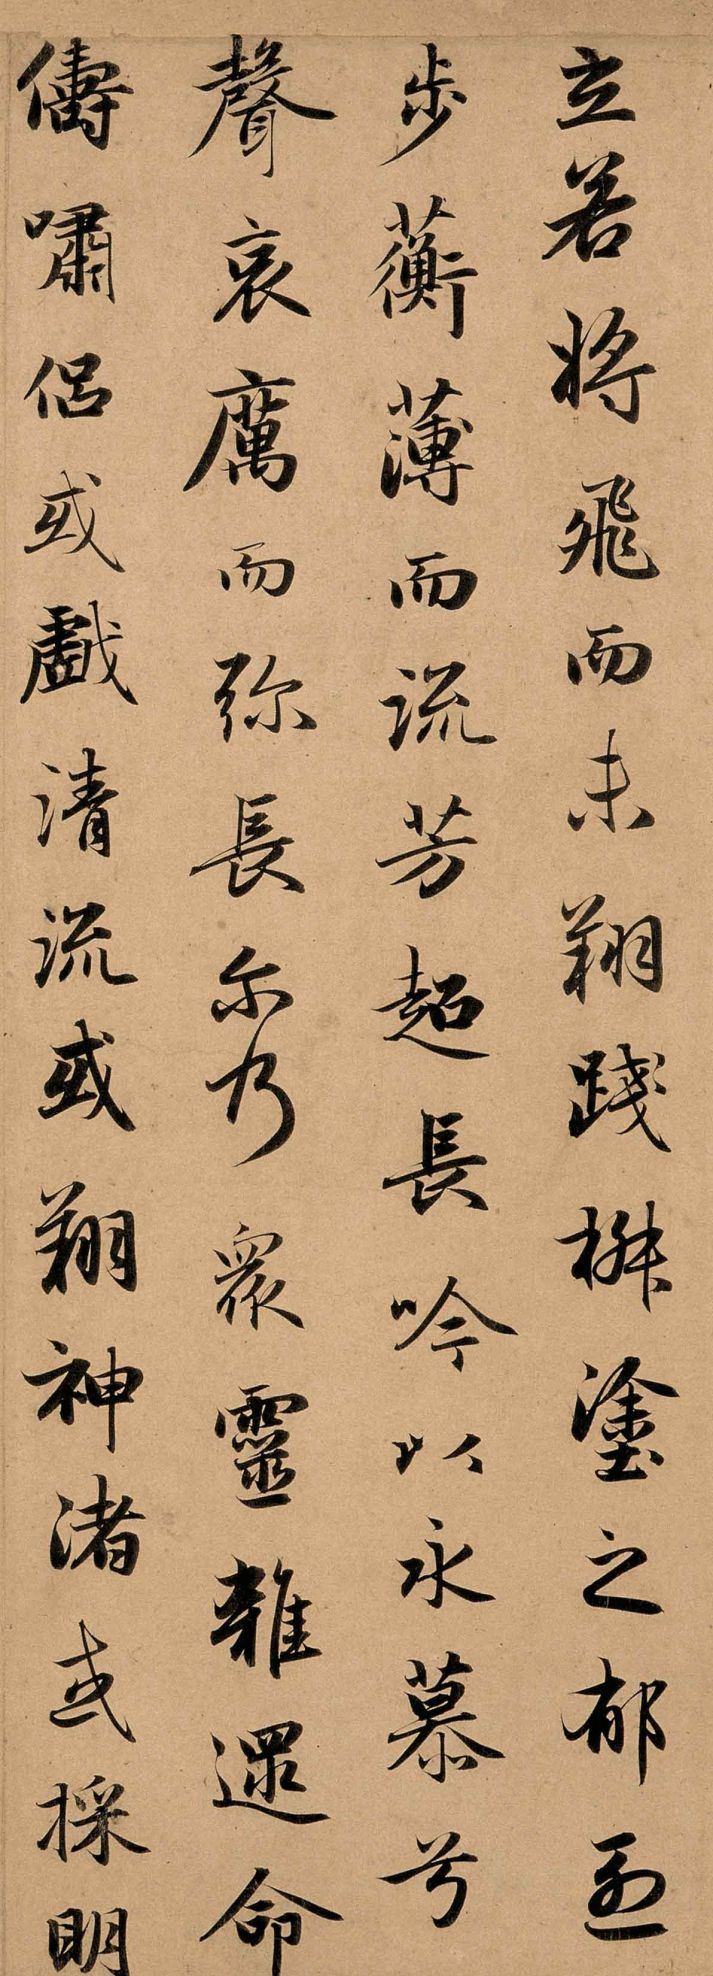 立若將飛而未翔踐椒塗之郁烈
步蘅薄而流芳超長吟以永慕兮
聲哀厲而弥長尔乃眾靈雜遝命
儔嘯侶或戲清流或翔神渚或採明